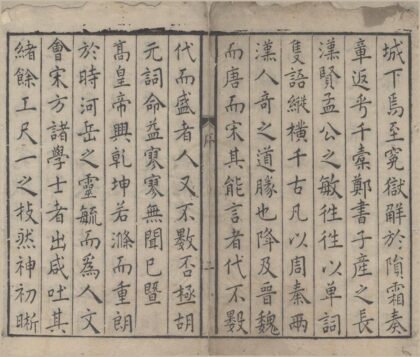 城下馬至寃獄解於隕霜奏
章返乎千橐鄭書子產之長
漢賢孟公之敏徃徃以單詞
隻語縱橫千古凡以周秦兩
漢人奇之道勝也降及晉魏
而唐而宋其能言者代不數
序
二
代而盛者人又不數否極胡
元詞命益寥寥無聞已暨
高皇帝興乾坤若滌而重朗
於時河岳之靈毓而為人文
會宋方諸學士者出咸吐其
緒餘工尺一之技然神初晰